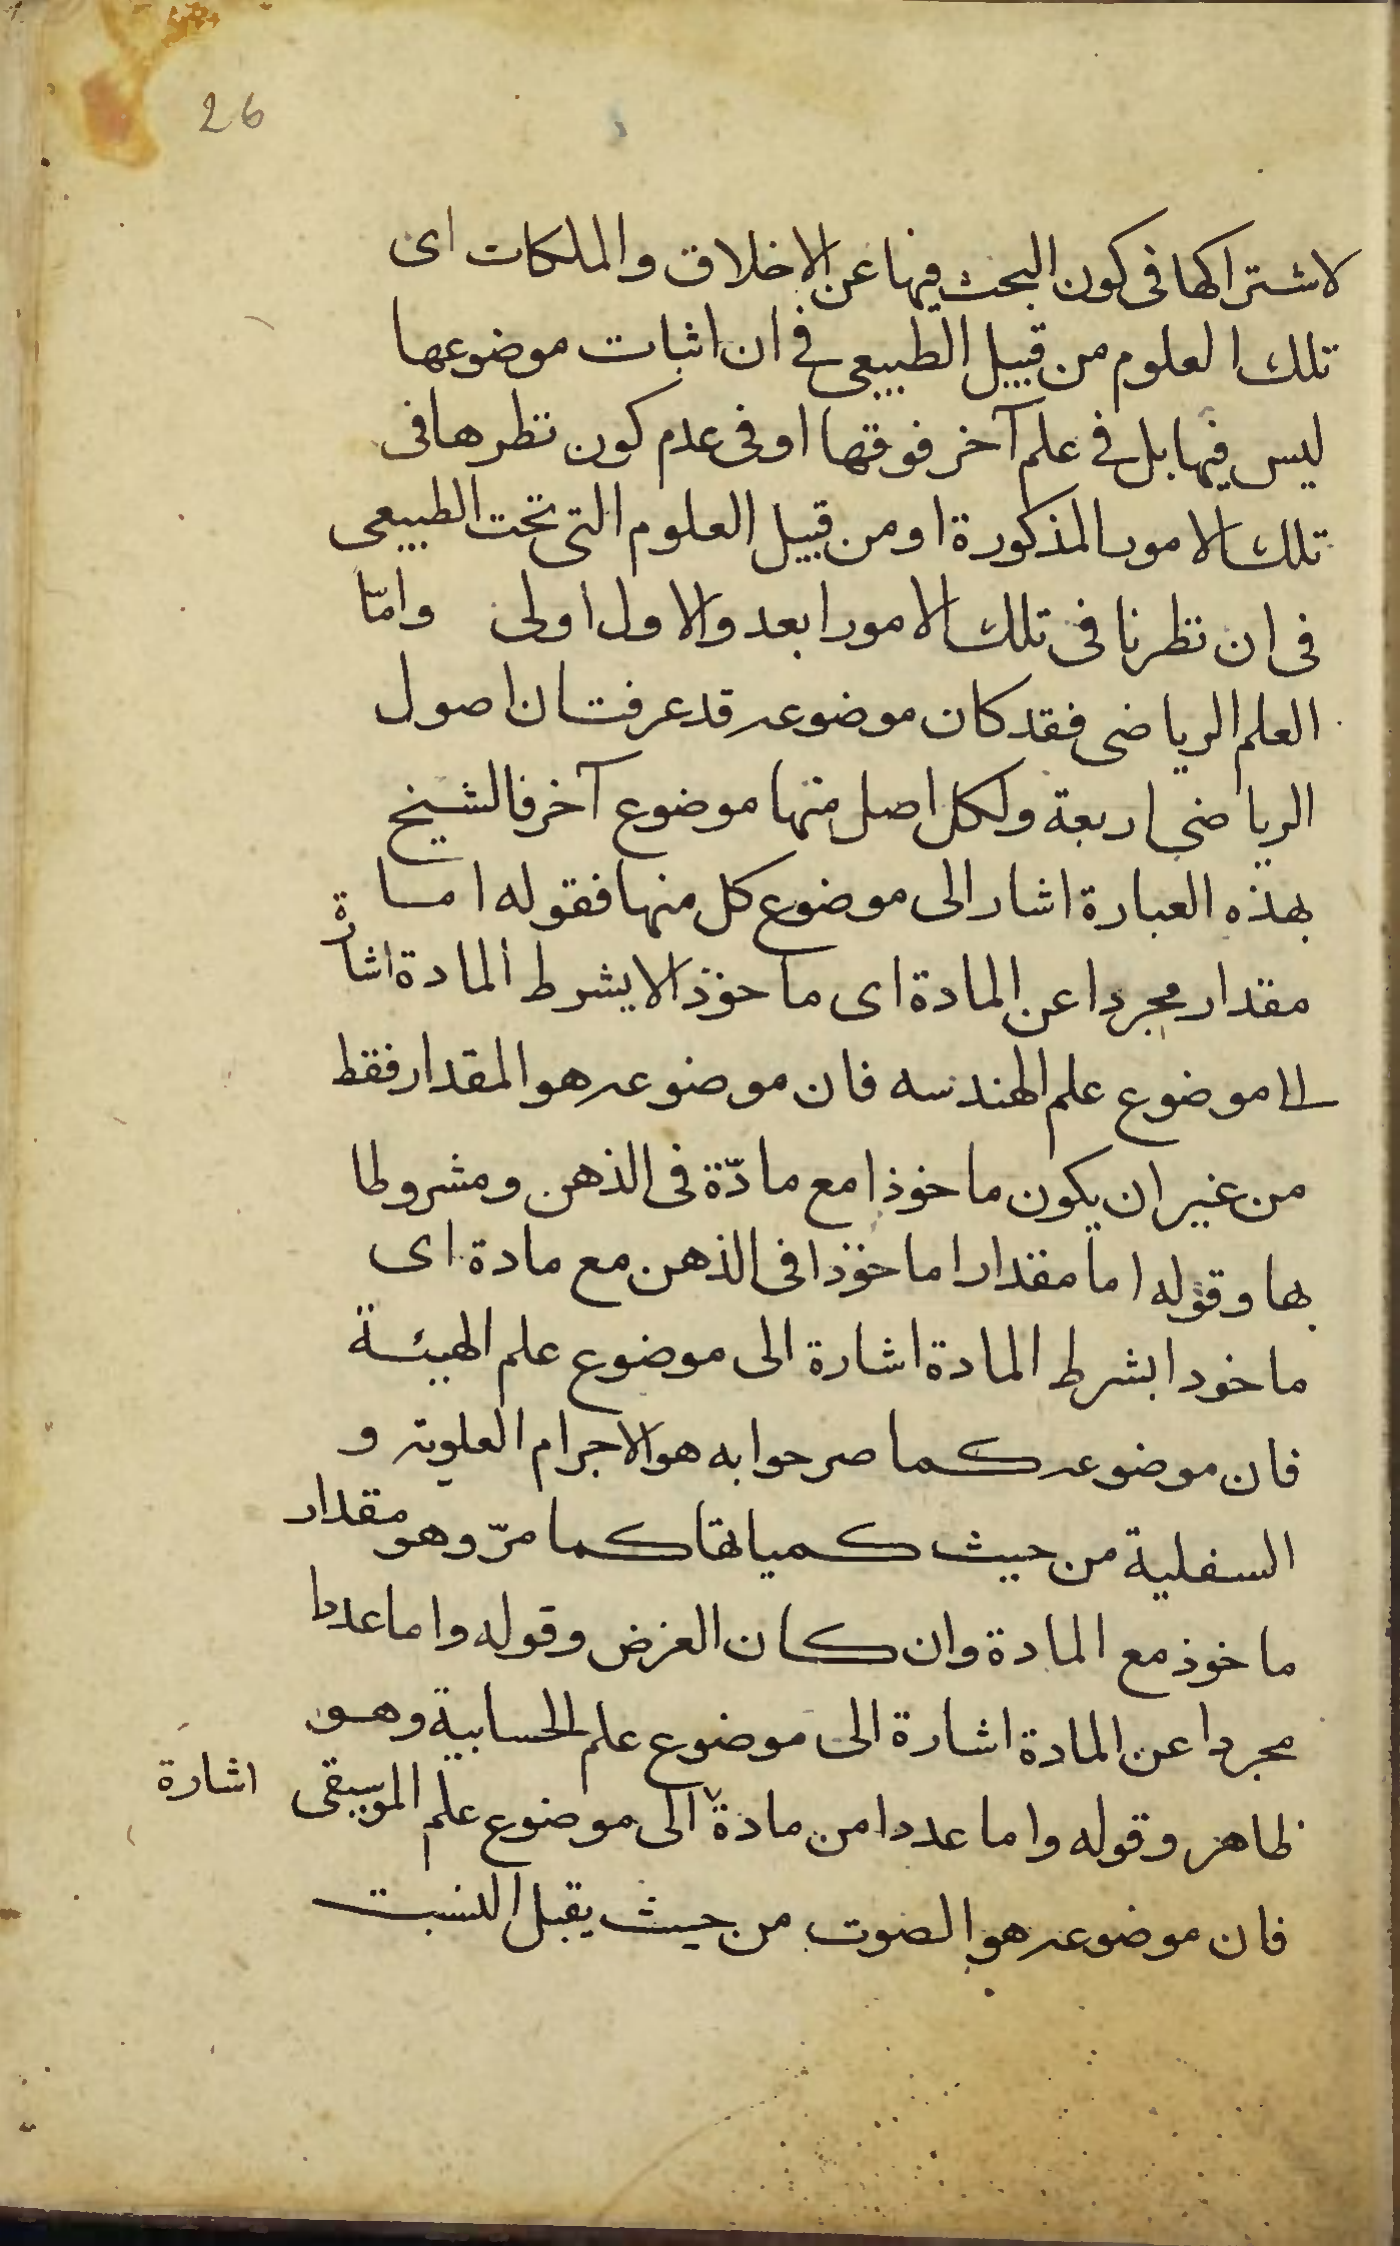 26
لاشتراكها فى كون البحث فيها عن الاخلاق والملكات اى
تلك العلوم من قبيل الطبيعى فى ان اثبات موضوعها
ليس فيها بل فى علم آخر فوقها او فى عدم كون نظرها فى
تلك الامور المذكورة او من قبيل العلوم التى تحت الطبيعى
فى ان نظرنا فى تلك الامور ابعد والاول اولى وامّا
العلم الرياضى فقد كان موضوعه قد عرفت ان اصول
الرياضى اربعة ولكل اصل منها موضوع آخر فالشيخ
بهذه العبارة اشار الى موضوع كل منها فقوله اما
مقدار مجردا عن المادة اى ماخوذ الا بشرط المادة اشارة
الى موضوع علم الهندسه فان موضوعه هو المقدار فقط
من غير ان يكون ماخوذا مع مادّة فى الذهن ومشروطا
بها وقوله اما مقدارا ماخوذا فى الذهن مع مادة اى
ماخودا بشرط المادة اشارة الى موضوع علم الهيئة
فان موضوعه كما صرحوا به هو الاجرام العلوية و
السفلية من حيث كمياتها كما مرّ وهو مقدار
ماخوذ مع المادة وان كان الغرض وقوله واما عددا
مجردا عن المادة اشارة الى موضوع علم الحسابية وهو
ظاهر وقوله واما عددا من مادة الى موضوع علم الموسيقى اشارة
فان موضوعه هو الصوت من حيث يقبل النسبت